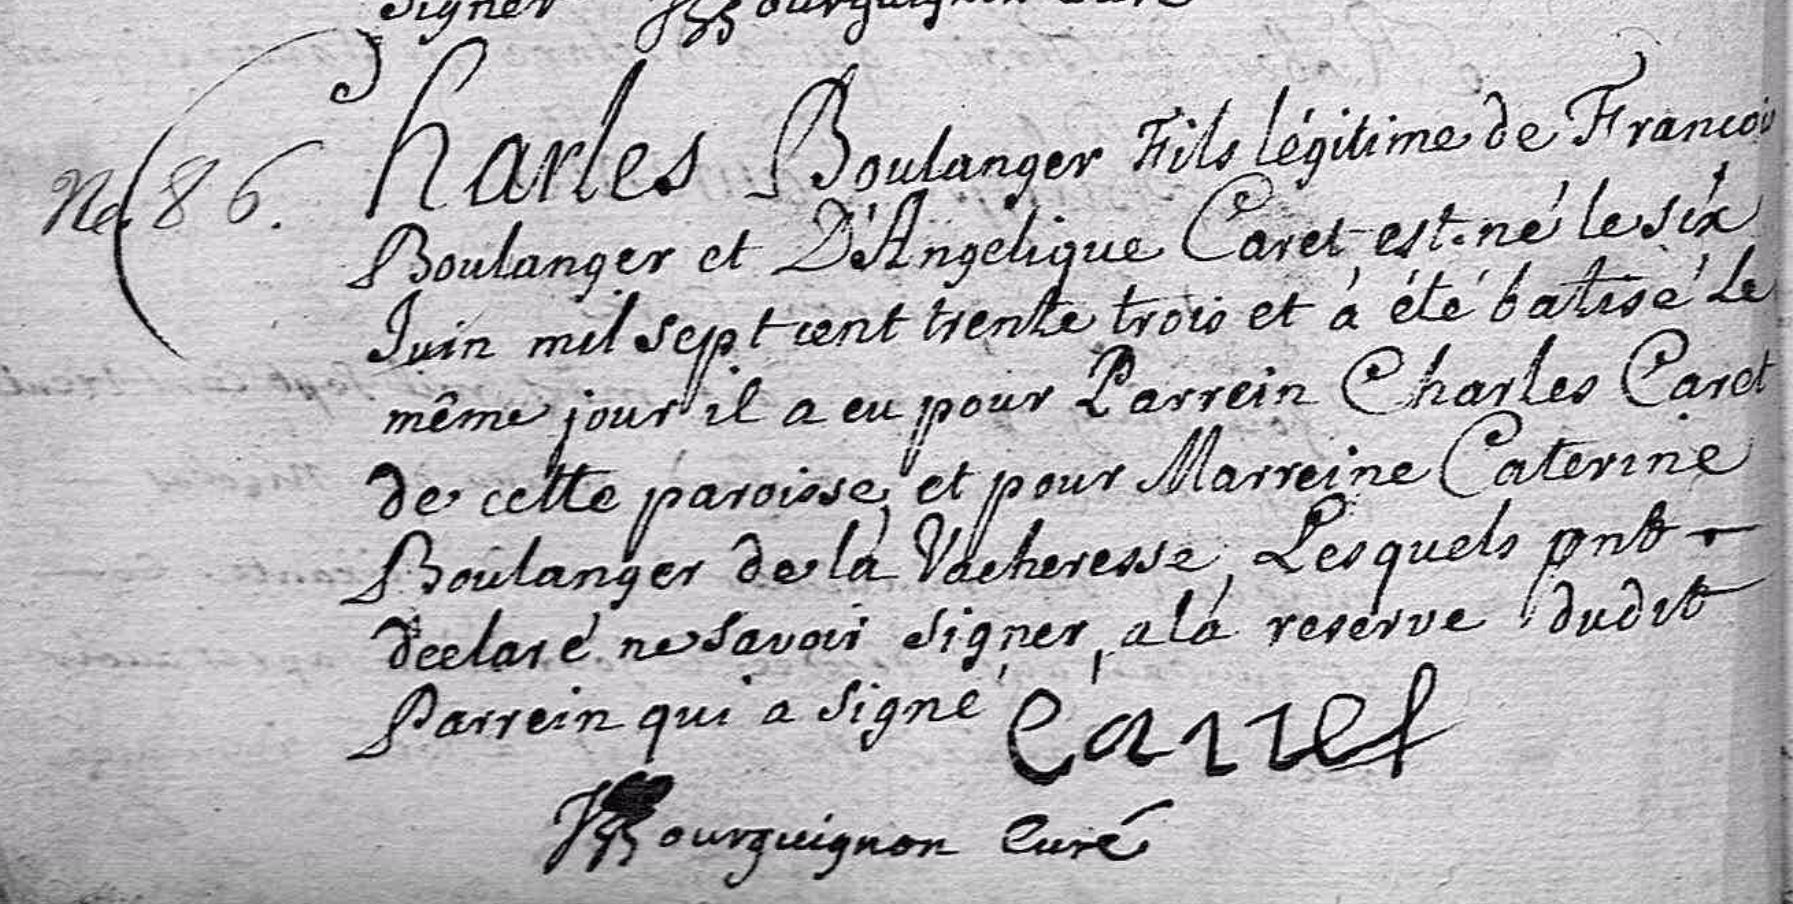 signer JB Bourguignon Curé
No. 86.
Charles Boulanger Fils légitime de Francois
Boulanger et D'Angelique Caret est né le six
Juin mil sept cent trente trois et à été batisé le
même jour il a eu pour Parrein Charles Caret
de cette paroisse, et pour Marreine Caterine
Boulanger de la Vacheresse, Lesquels ont
declaré ne savoir signer, a la reserve dudit
Parrein qui a signé Carret
JB Bourguignon Curé